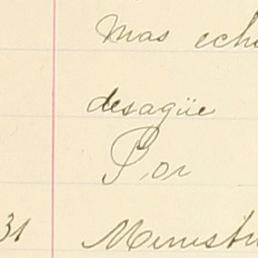 Mas echa
desagüe
Por
31 Menestr